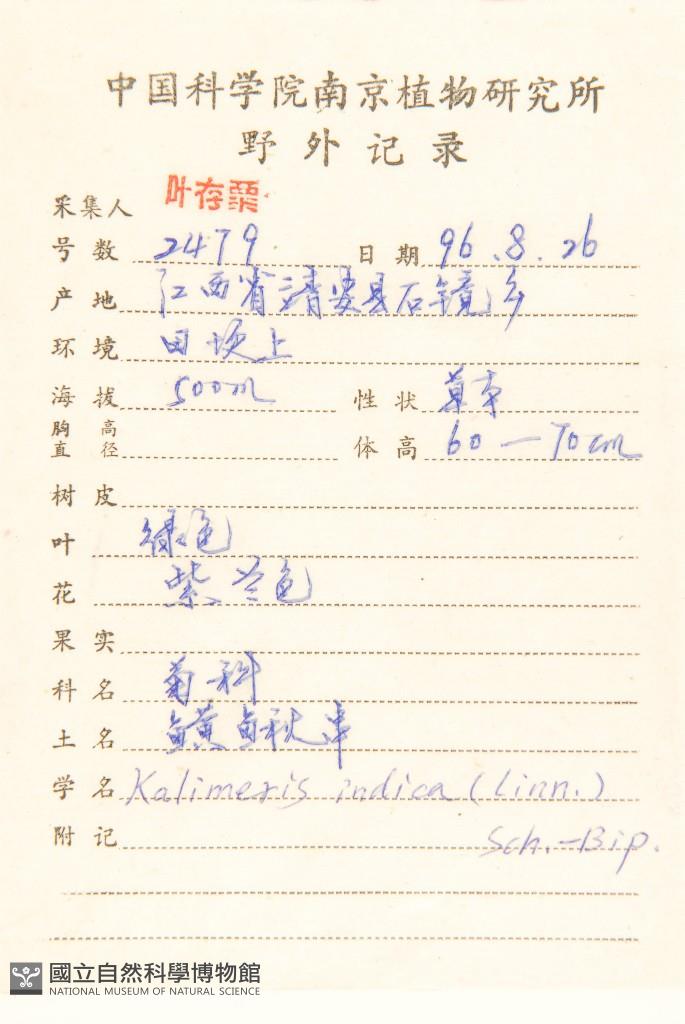 中国科学院南京植物研究所
野外记录
采集人 叶存粟
号数 2479 日期 96.8.26
产地 江西省靖安县石镜乡
环境 田埂上
海拔 500m 性状 草本
胸高直径 体高 60—70cm
树皮
叶 绿色
花 紫兰色
果实
科名 菊科
土名 鱼黄鱼秋串
学名 Kalimeris indica (Linn.)
附记 Sch.-Bip.
國立自然科學博物館
NATIONAL MUSEUM OF NATURAL SCIENCE